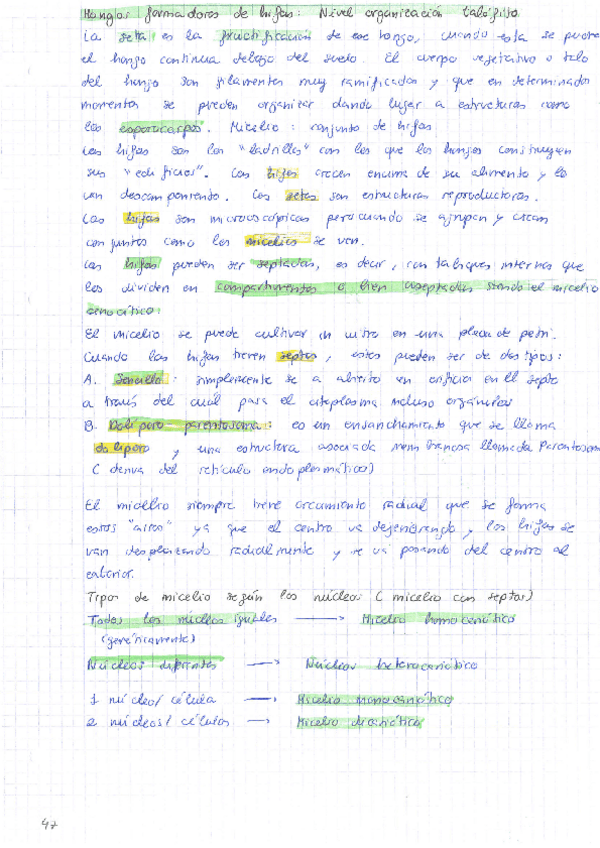 Hongos formadores de hifas: Nivel organización talófito
La seta es la fructificación de ese hongo, cuando esta se pudre
el hongo continua debajo del suelo. El cuerpo vegetativo o talo
del hongo son filamentos muy ramificados y que en determinados
momentos se pueden organizar dando lugar a estructuras como
los esporocarpos. Micelio: conjunto de hifas
Las hifas son los "ladrillos" con los que los hongos construyen
sus "edificios". Las hifas crecen encima de su alimento y lo
van descomponiendo. Las setas son estructuras reproductoras.
Las hifas son microscópicas pero cuando se agrupan y crean
conjuntos como los micelios se ven.
Las hifas pueden ser septadas, es decir, con tabiques internos que
los dividen en compartimentos o bien aseptadas siendo el micelio
cenocítico.
El micelio se puede cultivar in vitro en una placa de petri.
Cuando las hifas tienen septos, estos pueden ser de dos tipos:
A. Sencillo: simplemente se a abierto un orificio en el septo
a través del cual pasa el citoplasma incluso orgánulos
B. Doliporo parentosoma: es un ensanchamiento que se llama
doliporo y una estructura asociada membranosa llamada Parentosoma
(deriva del retículo endoplasmático)
El micelio siempre tiene crecimiento radial que se forma
estos "aros" ya que el centro va degenerando y las hifas se
van desplazando radialmente y se va pasando del centro al
exterior.
Tipos de micelio según los núcleos (micelio con septos)
Todos los núcleos iguales → Micelio homocariótico
(genéticamente)
Núcleos diferentes → Núcleos heterocariótico
1 núcleo/célula → Micelio monocariótico
2 núcleos/células → Micelio dicariótico
47